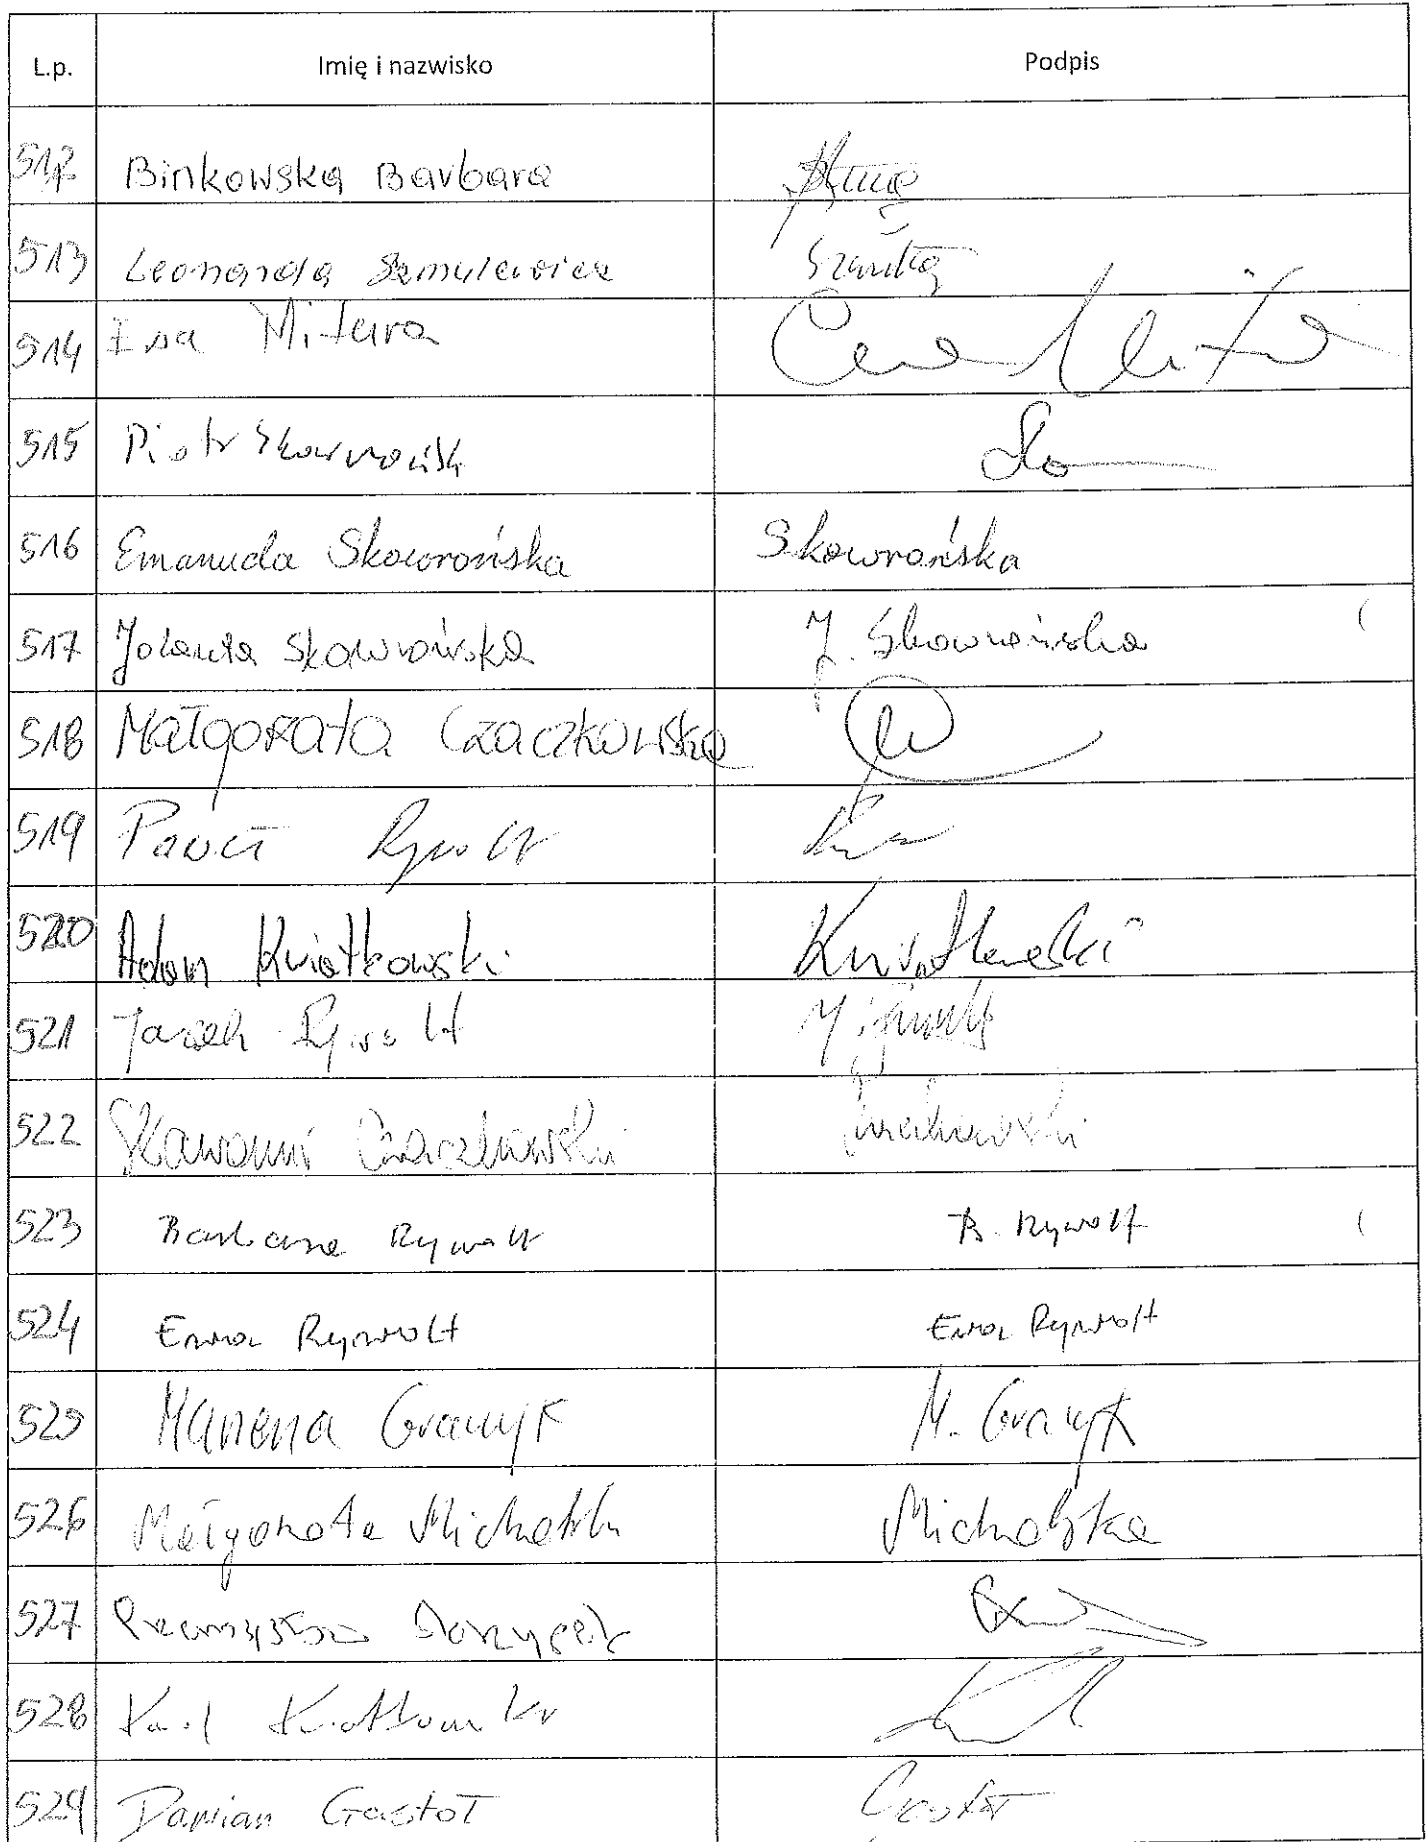 L.p. Imię i nazwisko Podpis
512 Binkowska Barbara
513 Leonarda Szmulewicz
514 Ewa Mitura
515 Piotr Skowroński
516 Emanuela Skowrońska Skowrońska
517 Jolanta Skowrońska J. Skowrońska
518 Małgorzata Czaczkowska
519 Paweł Rywolt
520 Adam Kwiatkowski Kwiatkowski
521 Jacek Rywolt
522 Sławomir Czaczkowski
523 Barbara Rywolt B. Rywolt
524 Ewa Rywolt Ewa Rywolt
525 Marzena Graczyk M. Graczyk
526 Małgorzata Michalska Michalska
527 Przemysław
528 Kwiatkowski
529 Damian Gastoł Gastoł